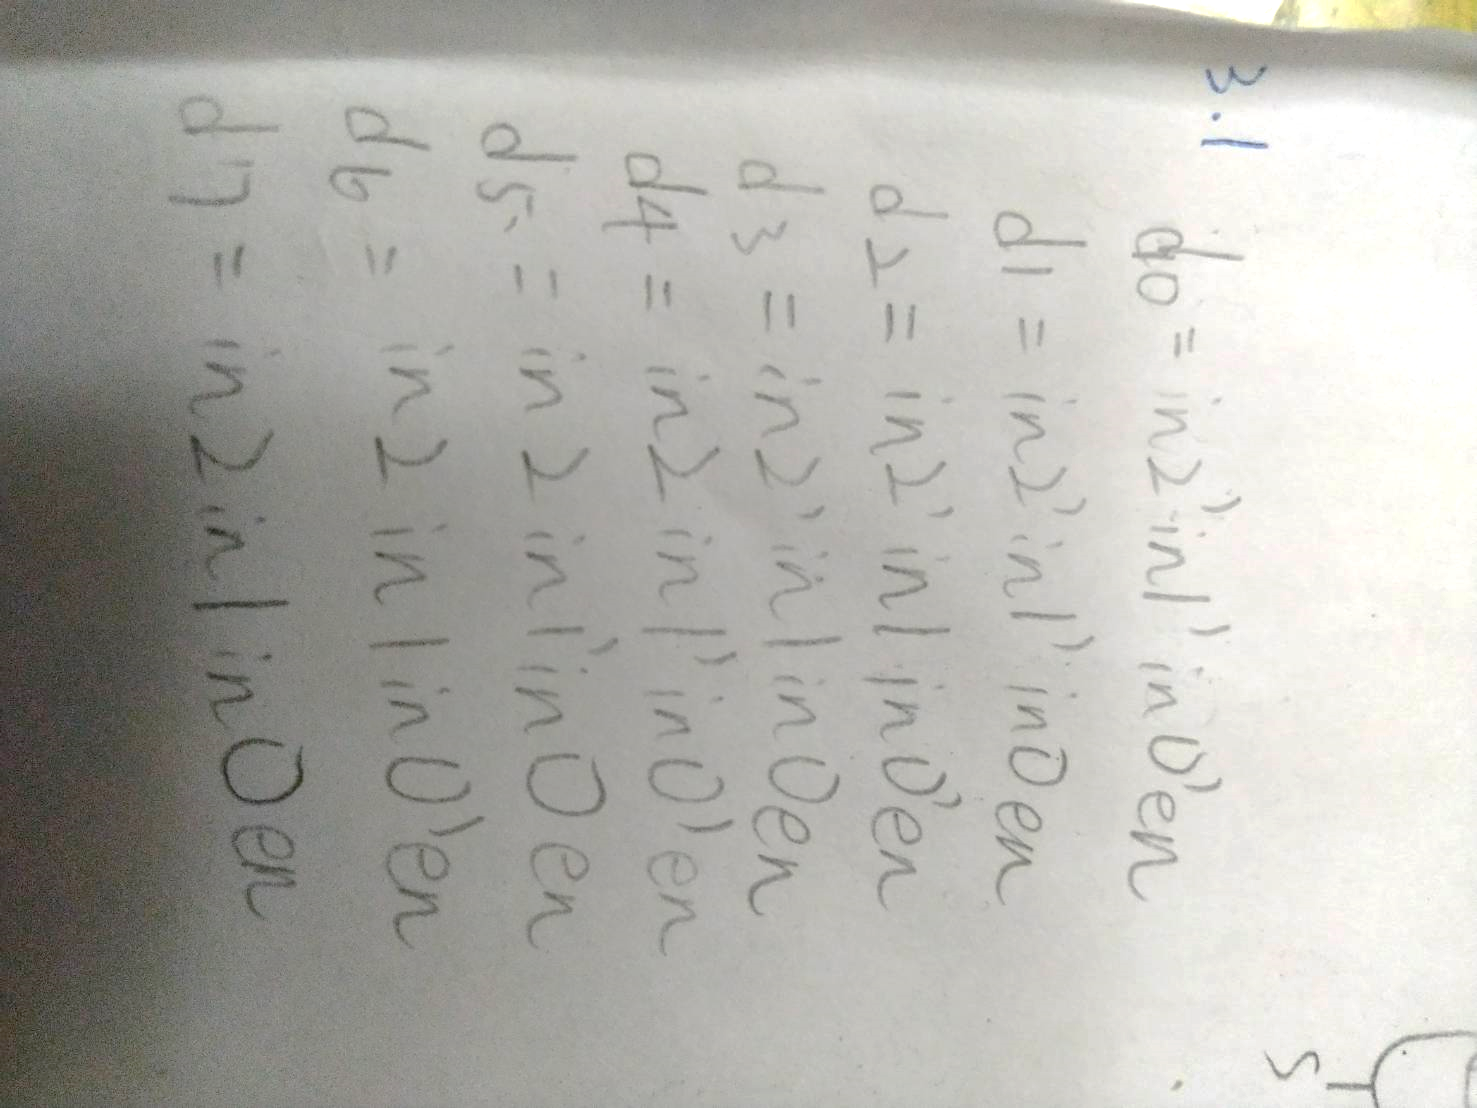 3.1
d0 = in2' in1' in0' en
d1 = in2' in1' in0 en
d2 = in2' in1 in0' en
d3 = in2' in1 in0 en
d4 = in2 in1' in0' en
d5 = in2 in1' in0 en
d6 = in2 in1 in0' en
d7 = in2 in1 in0 en
S